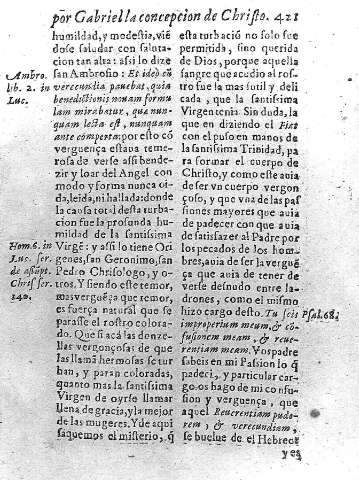 põr Gabriel la concepcion de Christo. 421
humildad, y modestia, viē
dose saludar con saluta-
cion tan alta: assi lo dize
san Ambrosio: Et ideo cũ
verecundia pauebat, quia
benedictionis nouam formu
lam mirabatur, quæ nun-
quam lecta est, nunquam
ante comperta: por esto cō
verguença estaua teme-
rosa de verse assi bende-
zir y loar del Angel con
modo y forma nunca oi-
da, leida, ni hallada: donde
la causa total desta turba-
cion fue la profunda hu-
mildad de la santissima
Virgē: y assi lo tiene Ori
genes, san Geronimo, san
Pedro Chrisologo, y o-
tros. Y siendo este temor,
mas verguēça que temor,
es fuerça natural que se
parasse el rostro colora-
do. Que si acá las donze-
llas vergonçosas de que
las llamā hermosas se tur
ban, y paran coloradas,
quanto mas la santissima
Virgen de oyrse llamar
llena de gracia, y la mejor
de las mugeres. Y de aqui
saquemos el misterio, q̃
Ambro.
lib. 2. in
Luc.
Hom. 6. in
Luc. ser.
de assūpt.
Chris. ser.
140.
esta turbació no solo fue
permitida, sino querida
de Dios, porque aquella
sangre que acudio al ros-
tro fue la mas sutil y deli
cada, que la santissima
Virgen tenia. Sin duda, la
que en diziendo el Fiat
con el puso en manos de
la santissima Trinidad, pa
ra formar el cuerpo de
Christo, y como este auia
de ser vn cuerpo vergon
çoso, y que vna de las pas
siones mayores que auia
de padecer con que auia
de satisfazer al Padre por
los pecados de los hom-
bres, auia de ser la verguē
ça que auia de tener de
verse desnudo entre la-
drones, como el mismo
hizo cargo desto. Tu scis
improperium meum, & cō-
fusionem meam, & reue-
rentiam meam. Vos padre
sabeis en mi Passion lo q̃
padeci, y particular car-
go os hago de mi confu-
sion y verguença, que
aquel Reuerentiam pudo-
rem, & verecundiam,
se buelue de el Hebreo
Psal. 68.
yes